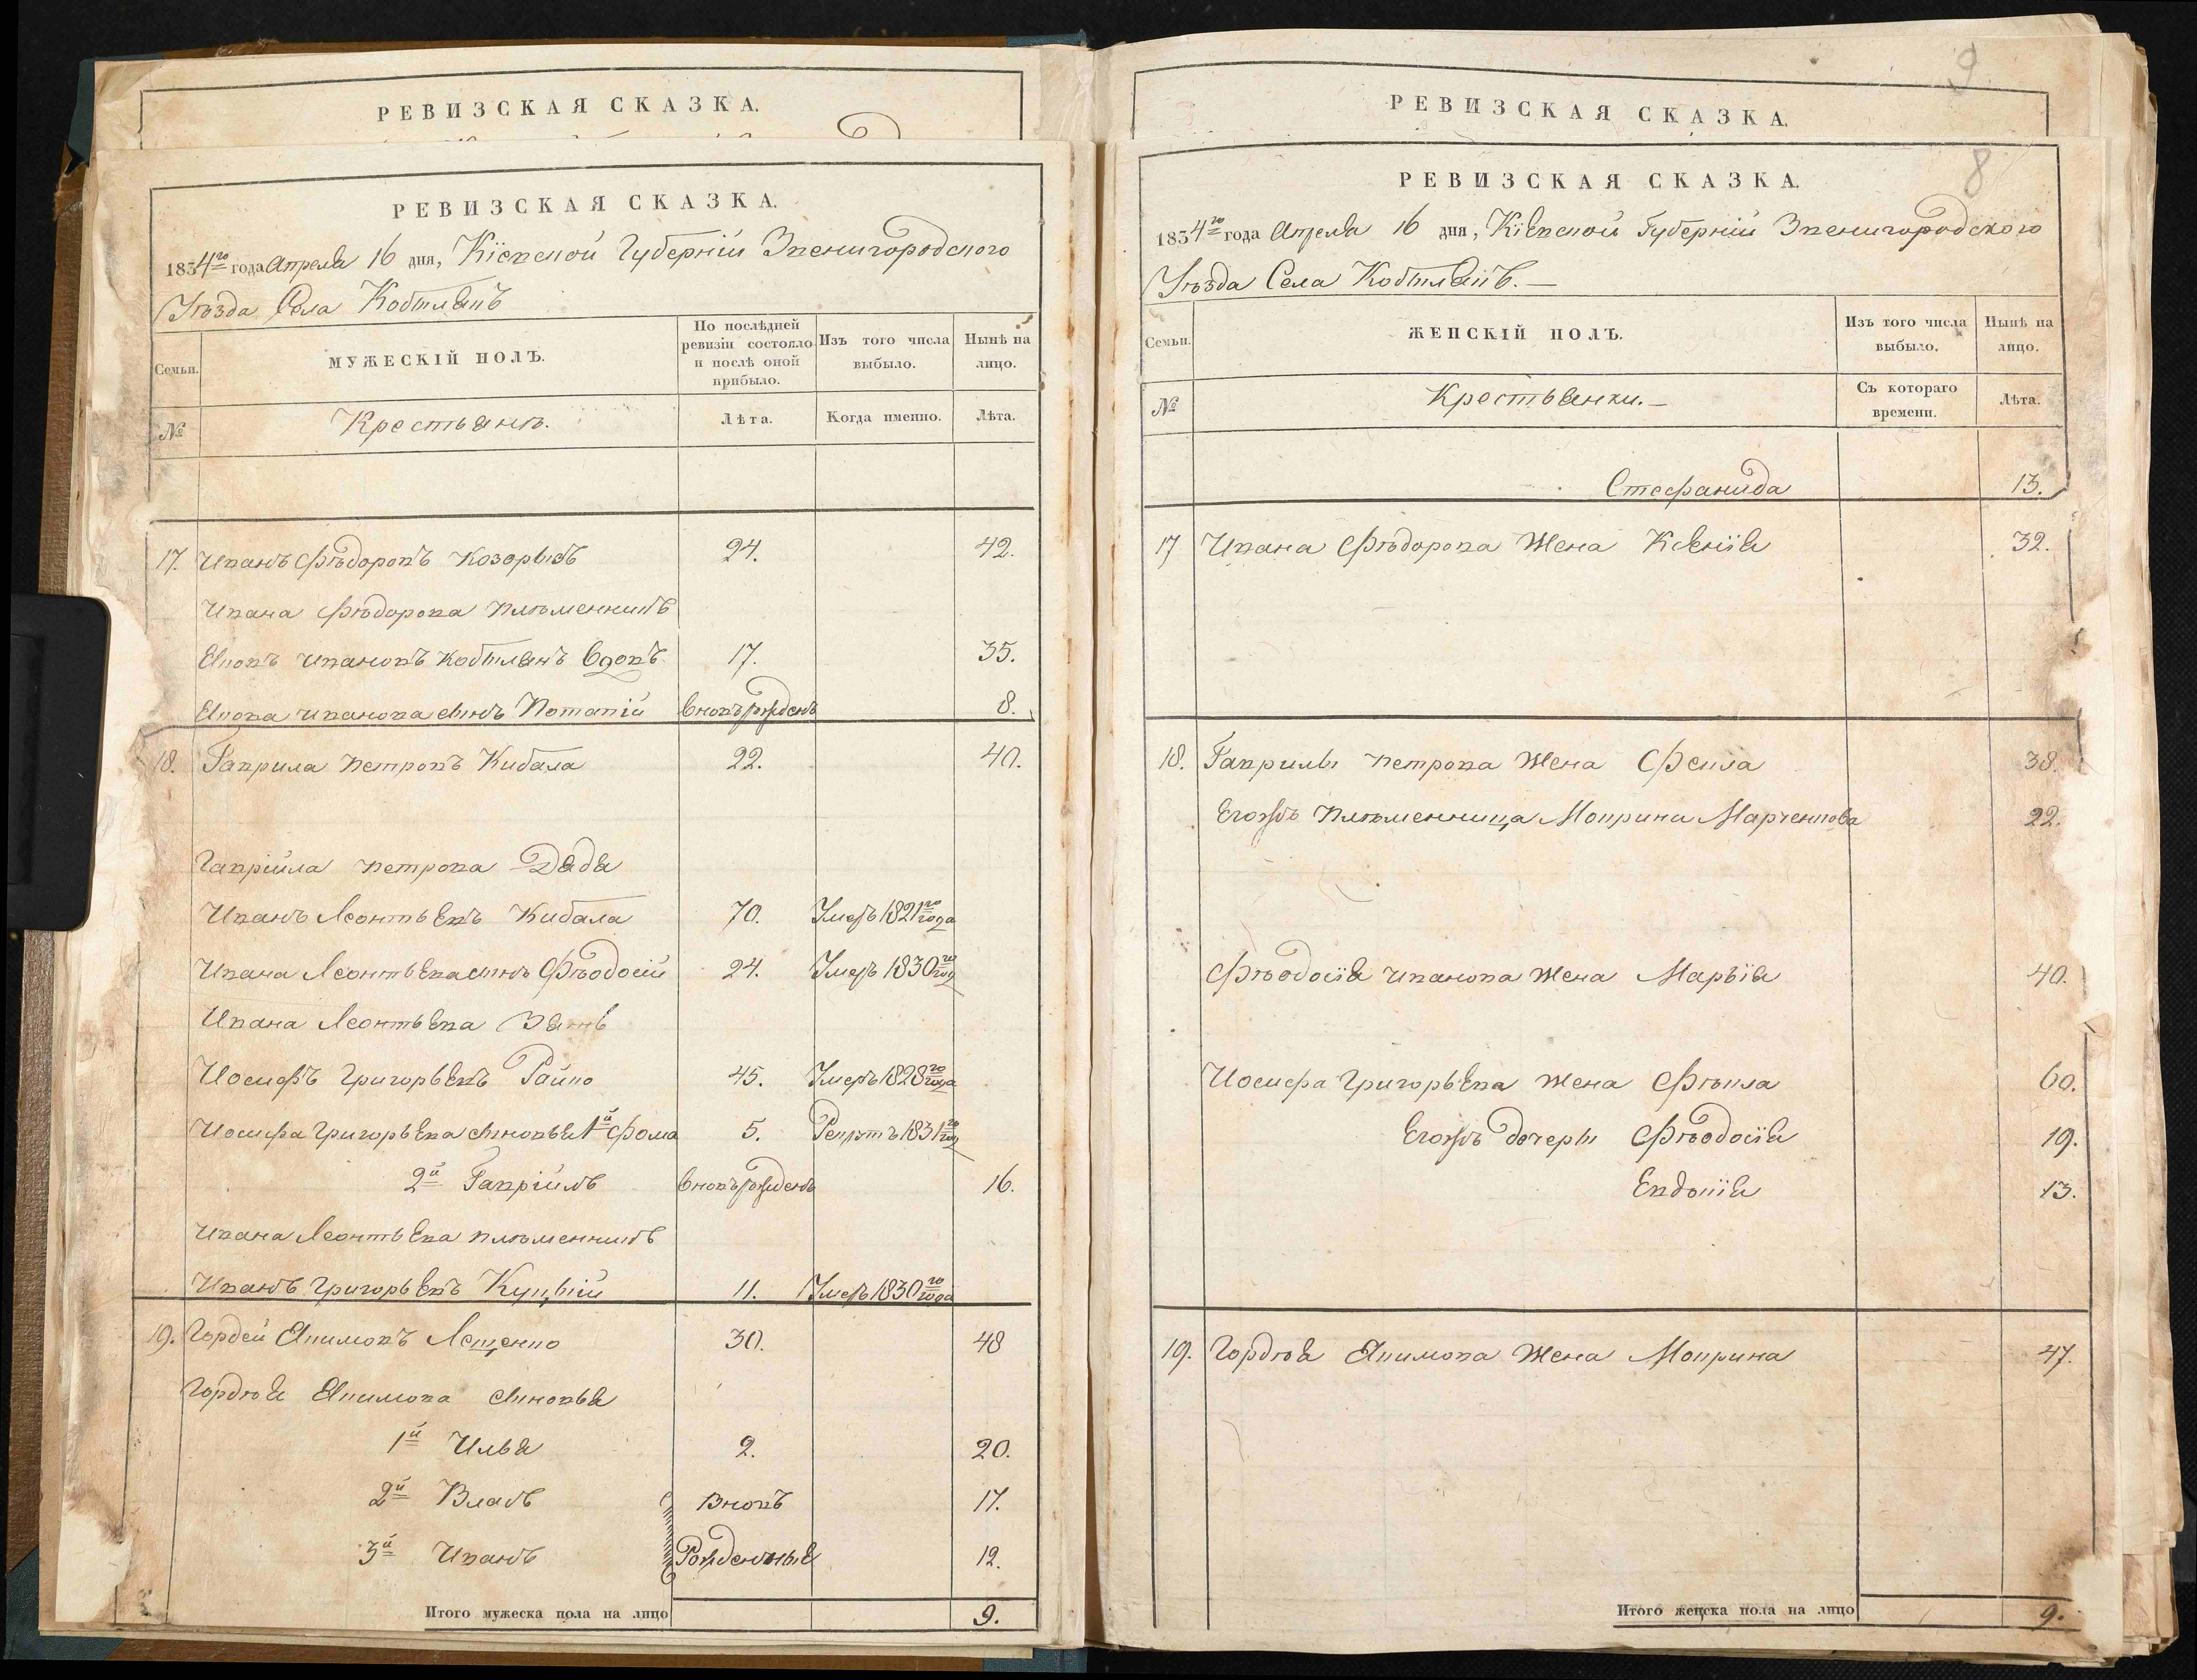 РЕВИЗСКАЯ СКАЗКА.
РЕВИЗСКАЯ СКАЗКА.
1834го года Апреля 16 дня, Кіевской Губерніи Звенигородского
Уѣзда Села Кобыляпъ
Семьи.
МУЖЕСКІЙ ПОЛЪ.
По послѣдней ревизіи состояло и послѣ оной прибыло.
Изъ того числа выбыло.
Нынѣ на лицо.
№
Крестьяне.
Лѣта.
Когда именно.
Лѣта.
17. Иванъ Фѣдоровъ Козорызъ 24. 42.
Ивана Фѣдорова Плѣменникъ
Яковъ Ивановъ Кобылянъ Вдовъ 17. 35.
Якова Иванова сынъ Потапій вновърожденъ 8.
18. Гаврила Петровъ Кибала 22. 40.
Гавріила Петрова Дядя
Иванъ Леонтьевъ Кибала 70. Умеръ 1821го года
Ивана Леонтьева сынъ Фѣодосій 24. Умеръ 1830го год
Ивана Леонтьева Зять
Иосифъ Григорьевъ Райко 45. Умеръ 1828го года
Иосифа Григорьева сыновья 1й Фома 5. Рекрутъ 1831го год
2й Гавріилъ вновърожденъ 16.
Ивана Леонтьева плѣменникъ
Иванъ Григорьевъ Куцый 11. Умеръ 1830го года
19. Гордей Якимовъ Лещенко 30. 48
Гордѣя Якимова сыновья
1й Илья 2. 20.
2й Власъ Вновъ 17.
3й Иванъ Рожденные 12.
Итого мужеска пола на лицо 9.
9
РЕВИЗСКАЯ СКАЗКА.
8
РЕВИЗСКАЯ СКАЗКА.
1834го года Апреля 16 дня, Кіевской Губерній Звенигородского
Уѣзда Села Кобылякъ.
Семьи.
ЖЕНСКІЙ ПОЛЪ.
Изъ того числа выбыло.
Нынѣ на лицо.
№
Крестьянки.
Съ котораго времени.
Лѣта.
Стефанида 13.
17 Ивана Фѣдорова Жена Ксенія 32.
18. Гаврилы Петрова Жена Фекла 38.
Егожъ Плѣменница Мокрина Марченкова 22.
Фѣодосія Иванова Жена Марыя 40.
Иосифа Григорьева Жена Фѣкла 60.
Егожъ дочеры Фѣодосія 19.
Евдокія 13.
19. Гордѣя Якимова Жена Мокрина 47.
Итого женска пола на лицо 9.